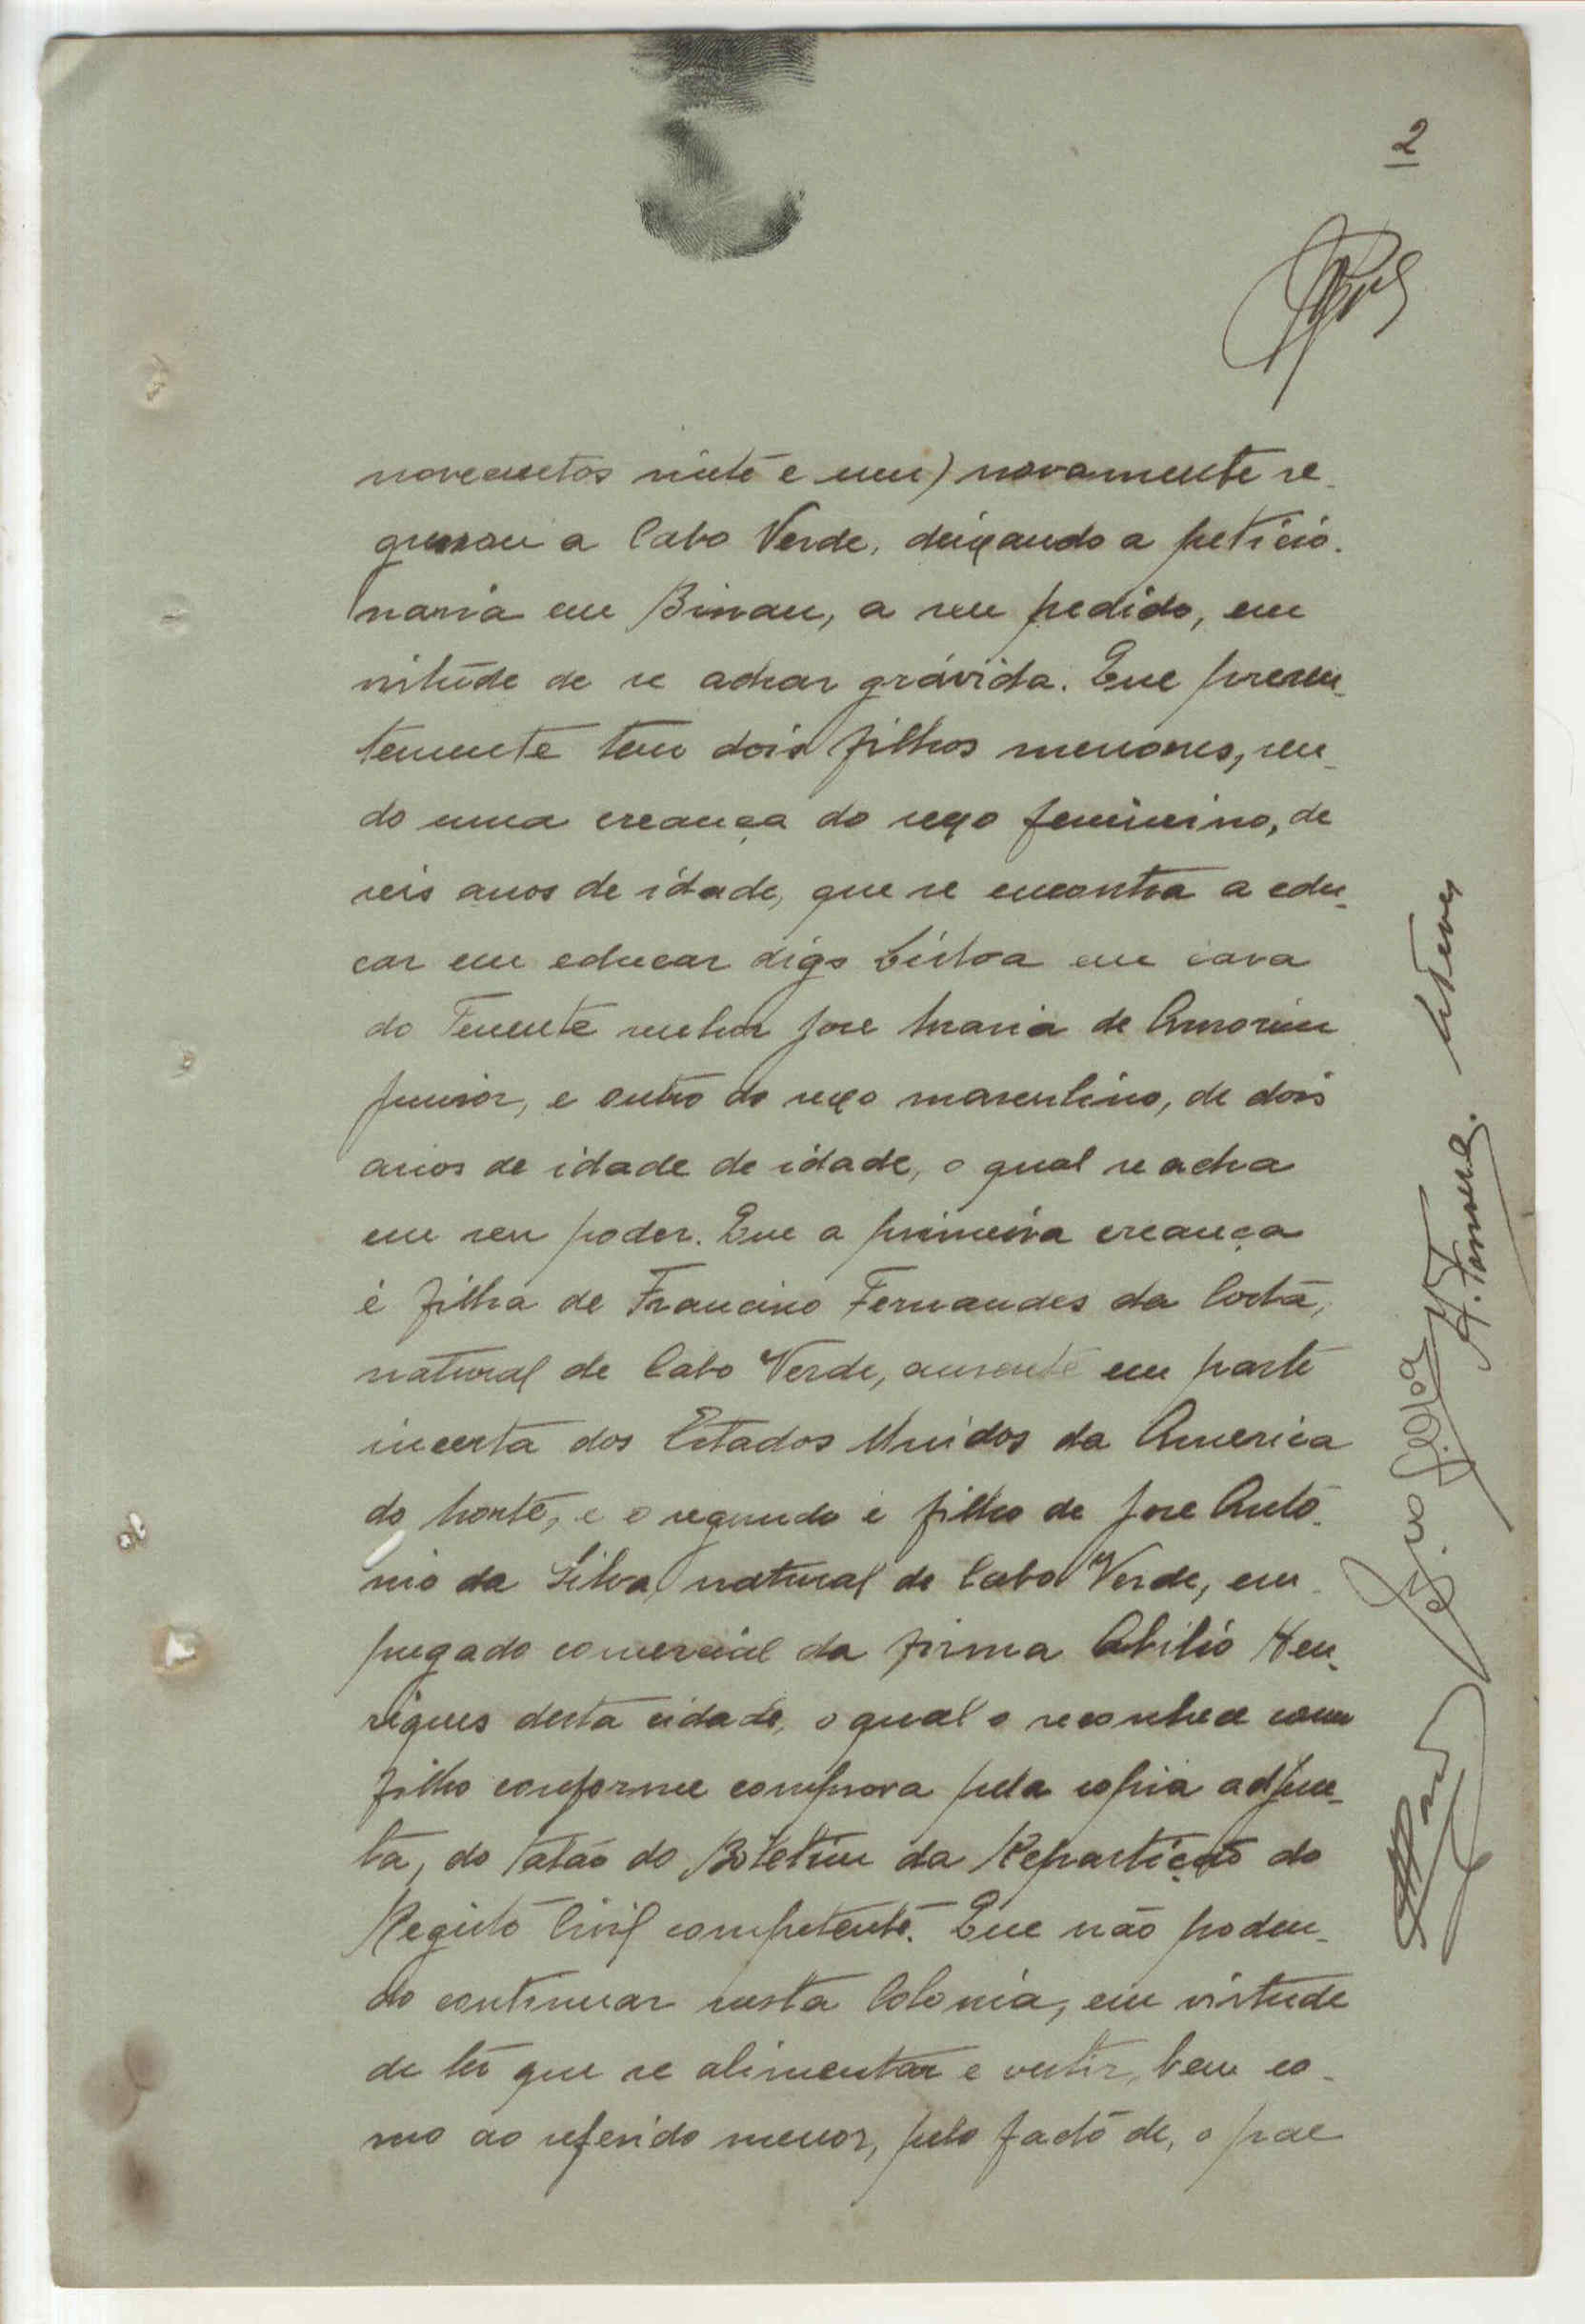 2
novecentos vinte e um) novamente re-
gressou a Cabo Verde, deixando a peticio-
naria em Bissau, a seu pedido, em
virtude de se achar grávida. Que presen-
temente tem dois filhos menores, sen-
do uma creança do sexo feminino, de
seis anos de idade, que se encontra a edu-
car em educar digo Lisboa em casa
do Tenente senhor José Maria de Amorim
Junior, e outro do sexo masculino, de dois
anos de idade de idade, o qual se acha
em seu poder. Que a primeira creança
é filha de Francisco Fernandes da Costa,
natural de Cabo Verde, ausente em parte
incerta dos Estados Unidos da America
do Norte, e o segundo é filho de José Antó-
nio da Silva, natural de Cabo Verde, em-
pregado comercial da firma Abilio Hen-
riques desta cidade, o qual o reconhece como
filho conforme comprova pela copia adjun-
ta, do talão do Boletim da Repartição do
Registo Civil competente. Que não poden-
do continuar nesta Colonia, em virtude
de ter que se alimentar e vestir, bem co-
mo ao referido menor, pelo facto de, o pae